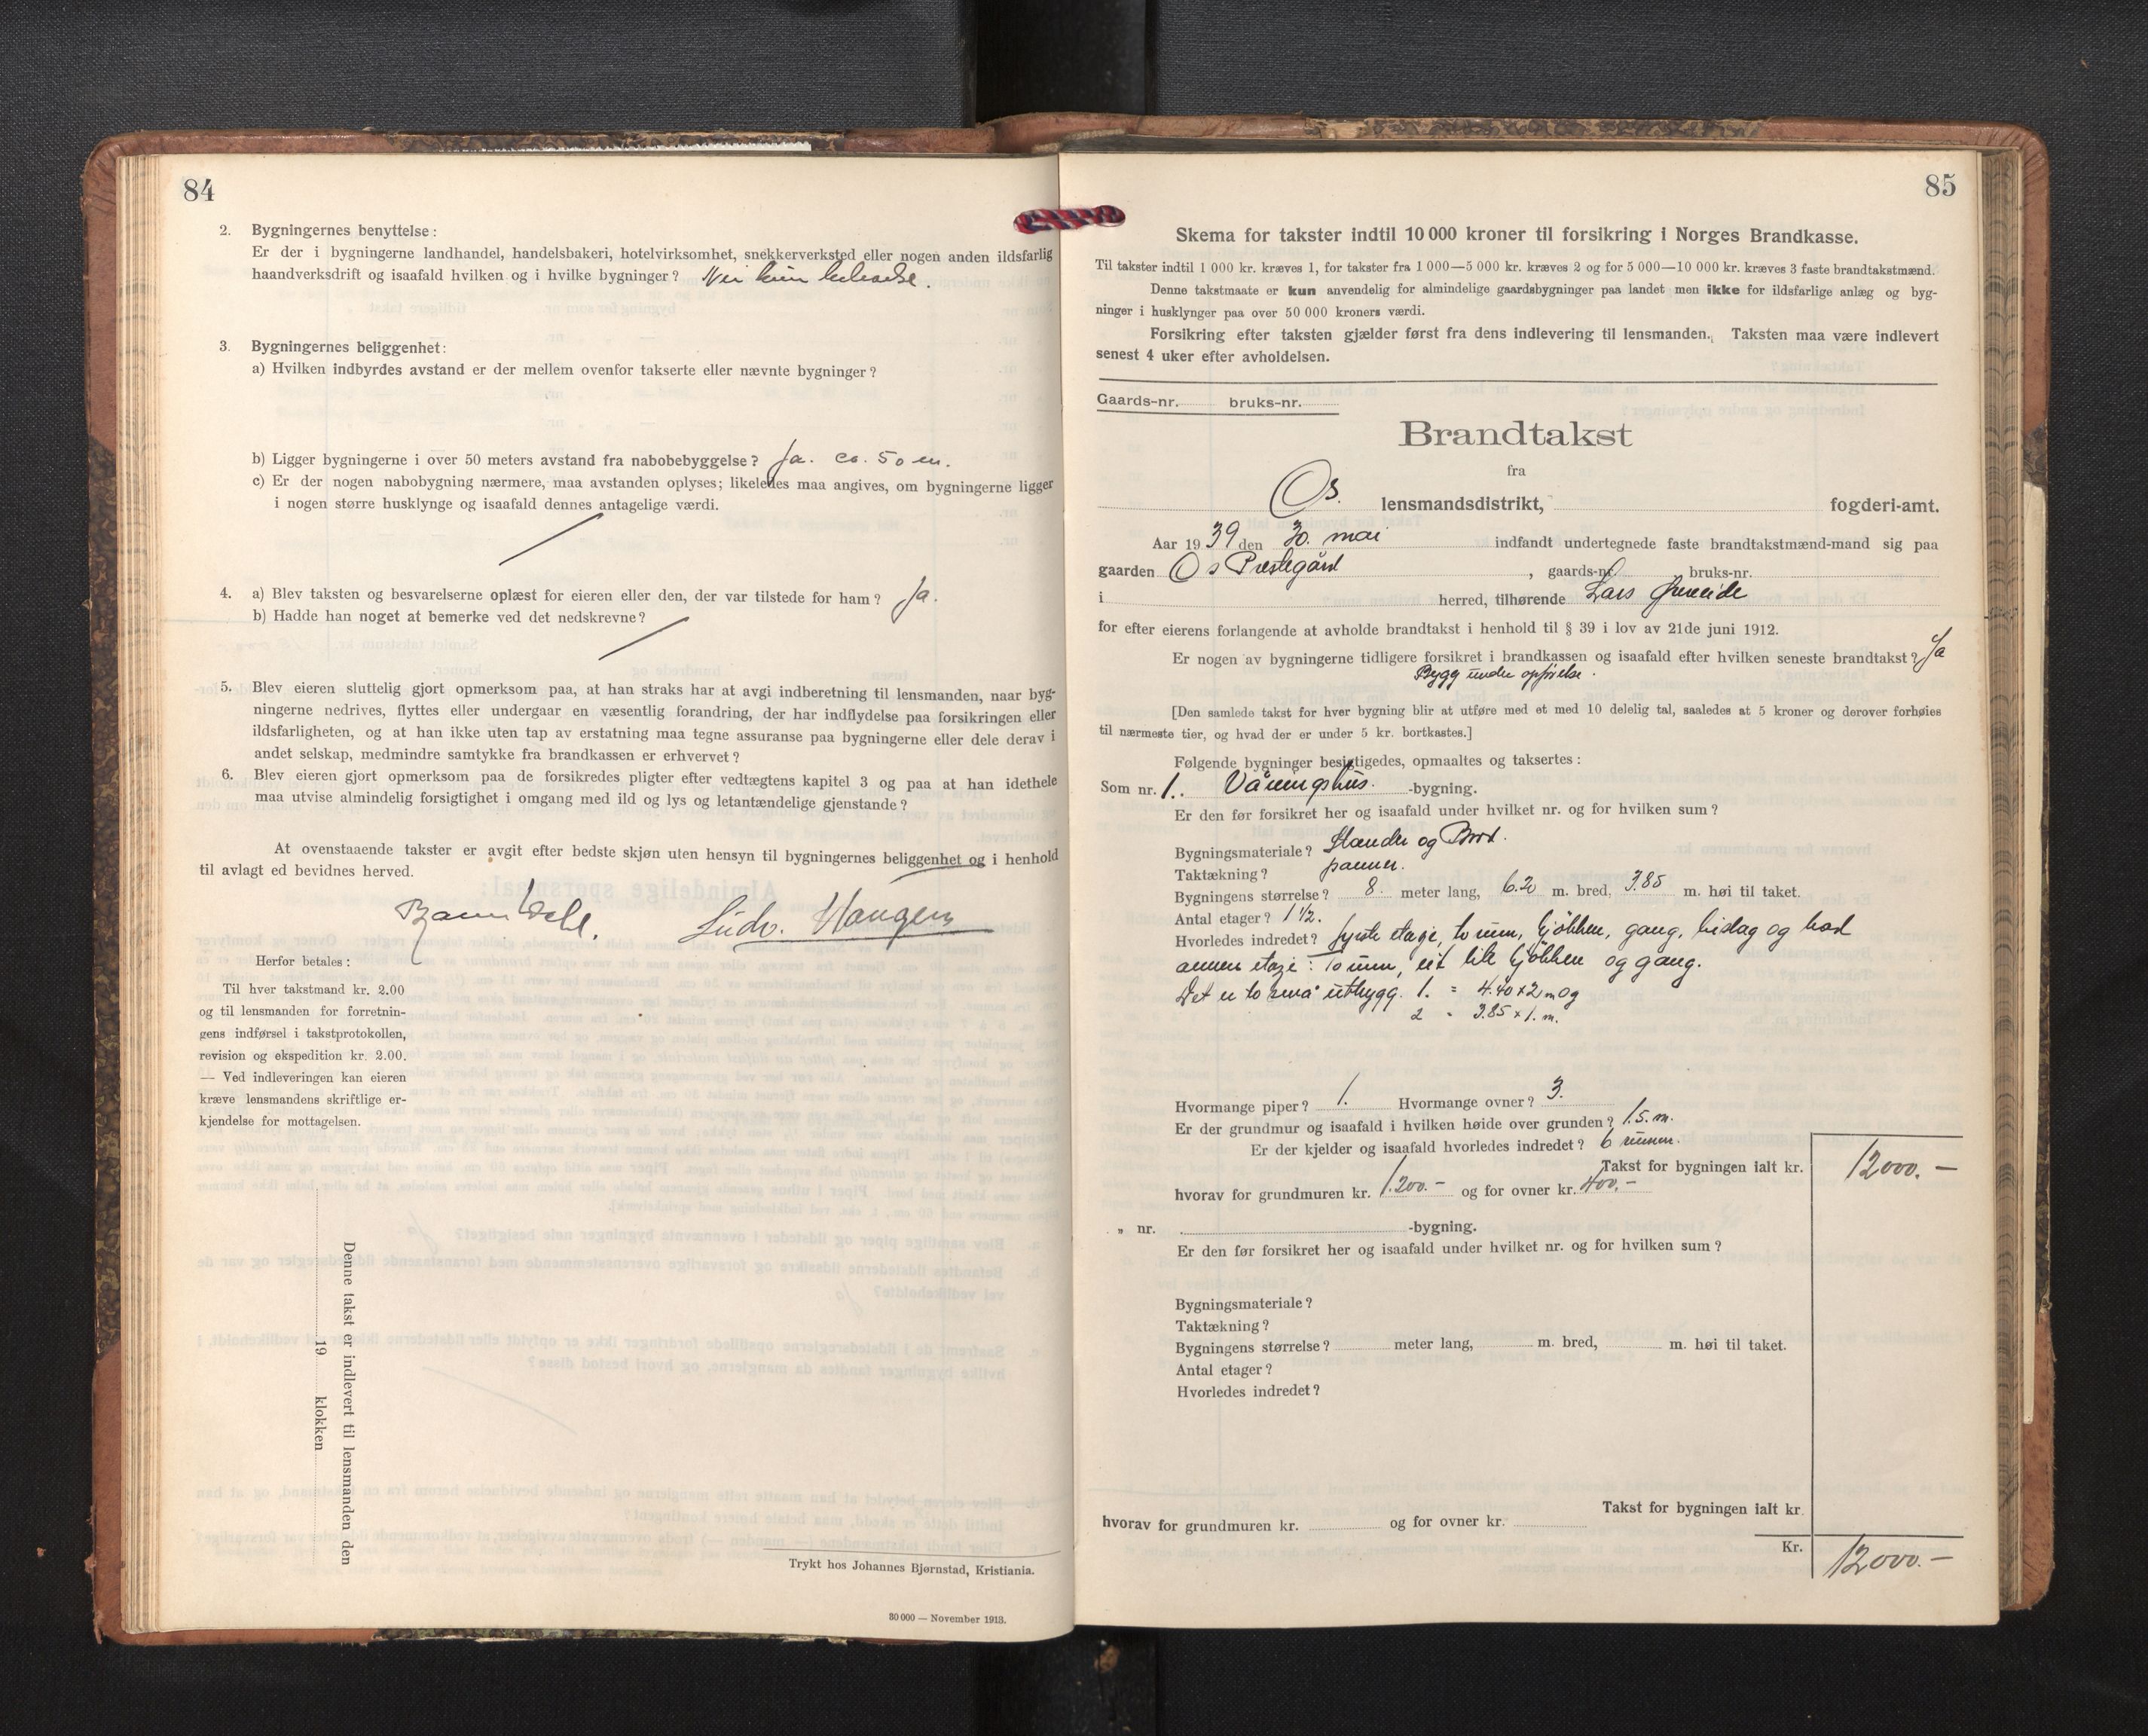 84
2. Bygningernes benyttelse:
Er der i bygningerne landhandel, handelsbakeri, hotelvirksomhet, snekkerverksted eller nogen anden ildsfarlig
haandverksdrift og isaafald hvilken og i hvilke bygninger? Nei kun beboelse.
3. Bygningernes beliggenhet:
a) Hvilken indbyrdes avstand er der mellem ovenfor takserte eller nævnte bygninger?
b) Ligger bygningerne i over 50 meters avstand fra nabobebyggelse? Ja. ca. 50 m.
c) Er der nogen nabobygning nærmere, maa avstanden oplyses; likeledes maa angives, om bygningerne ligger
i nogen større husklynge og isaafald dennes antagelige værdi.
4. a) Blev taksten og besvarelserne oplæst for eieren eller den, der var tilstede for ham? Ja.
b) Hadde han noget at bemerke ved det nedskrevne?
5. Blev eieren sluttelig gjort opmerksom paa, at han straks har at avgi indberetning til lensmanden, naar byg-
ningerne nedrives, flyttes eller undergaar en væsentlig forandring, der har indflydelse paa forsikringen eller
ildsfarligheten, og at han ikke uten tap av erstatning maa tegne assuranse paa bygningerne eller dele derav i
andet selskap, medmindre samtykke fra brandkassen er erhvervet?
6. Blev eieren gjort opmerksom paa de forsikredes pligter efter vedtægtens kapitel 3 og paa at han idethele
maa utvise almindelig forsigtighet i omgang med ild og lys og letantændelige gjenstande?
At ovenstaaende takster er avgit efter bedste skjøn uten hensyn til bygningernes beliggenhet og i henhold
til avlagt ed bevidnes herved.
Ludv. Haugen
Herfor betales:
Til hver takstmand kr. 2.00
og til lensmanden for forretnin-
gens indførsel i takstprotokollen,
revision og ekspedition kr. 2.00.
— Ved indleveringen kan eieren
kræve lensmandens skriftlige er-
kjendelse for mottagelsen.
Denne takst er indlevert til lensmanden den
19 klokken
Trykt hos Johannes Bjørnstad, Kristiania.
30 000 — November 1913.
85
Skema for takster indtil 10 000 kroner til forsikring i Norges Brandkasse.
Til takster indtil 1 000 kr. kræves 1, for takster fra 1 000—5 000 kr. kræves 2 og for 5 000—10 000 kr. kræves 3 faste brandtakstmænd.
Denne takstmaate er kun anvendelig for almindelige gaardsbygninger paa landet men ikke for ildsfarlige anlæg og byg-
ninger i husklynger paa over 50 000 kroners værdi.
Forsikring efter taksten gjælder først fra dens indlevering til lensmanden. Taksten maa være indlevert
senest 4 uker efter avholdelsen.
Gaards-nr. bruks-nr.
Brandtakst
fra
Os. lensmandsdistrikt, fogderi-amt.
Aar 1939 den 30. mai indfandt undertegnede faste brandtakstmænd-mand sig paa
gaarden Os Prestegård, gaards-nr. bruks-nr.
i herred, tilhørende Lars Øvreeide
for efter eierens forlangende at avholde brandtakst i henhold til § 39 i lov av 21de juni 1912.
Er nogen av bygningerne tidligere forsikret i brandkassen og isaafald efter hvilken seneste brandtakst? Ja
Bygg under opførelse.
[Den samlede takst for hver bygning blir at utføre med et med 10 delelig tal, saaledes at 5 kroner og derover forhøies
til nærmeste tier, og hvad der er under 5 kr. bortkastes.]
Følgende bygninger besigtigedes, opmaaltes og taksertes:
Som nr. 1. Våningshus. -bygning.
Er den før forsikret her og isaafald under hvilket nr. og for hvilken sum?
Bygningsmateriale? Stander og Bord.
Taktækning? panner.
Bygningens størrelse? 8. meter lang, 6.20 m. bred, 3.85 m. høi til taket.
Antal etager? 1 1/2.
Hvorledes indredet? fyrste etasje, to rum, kjøkken, gang, bislag og bad
annen etasje: To rum, eit lite kjøkken og gang.
Det er to små utbygg. 1. = 4.40 x 2 m og
2 " 3.85 x 1. m.
Hvormange piper? 1. Hvormange ovner? 3.
Er der grundmur og isaafald i hvilken høide over grunden? 1.5. m.
Er der kjelder og isaafald hvorledes indredet? 6 rumm.
Takst for bygningen ialt kr. 12000.-
hvorav for grundmuren kr. 1.200.- og for ovner kr. 400.-
„ nr. -bygning.
Er den før forsikret her og isaafald under hvilket nr. og for hvilken sum?
Bygningsmateriale?
Taktækning?
Bygningens størrelse? meter lang, m. bred, m. høi til taket.
Antal etager?
Hvorledes indredet?
Takst for bygningen ialt kr.
hvorav for grundmuren kr. og for ovner kr.
Kr. 12000.-